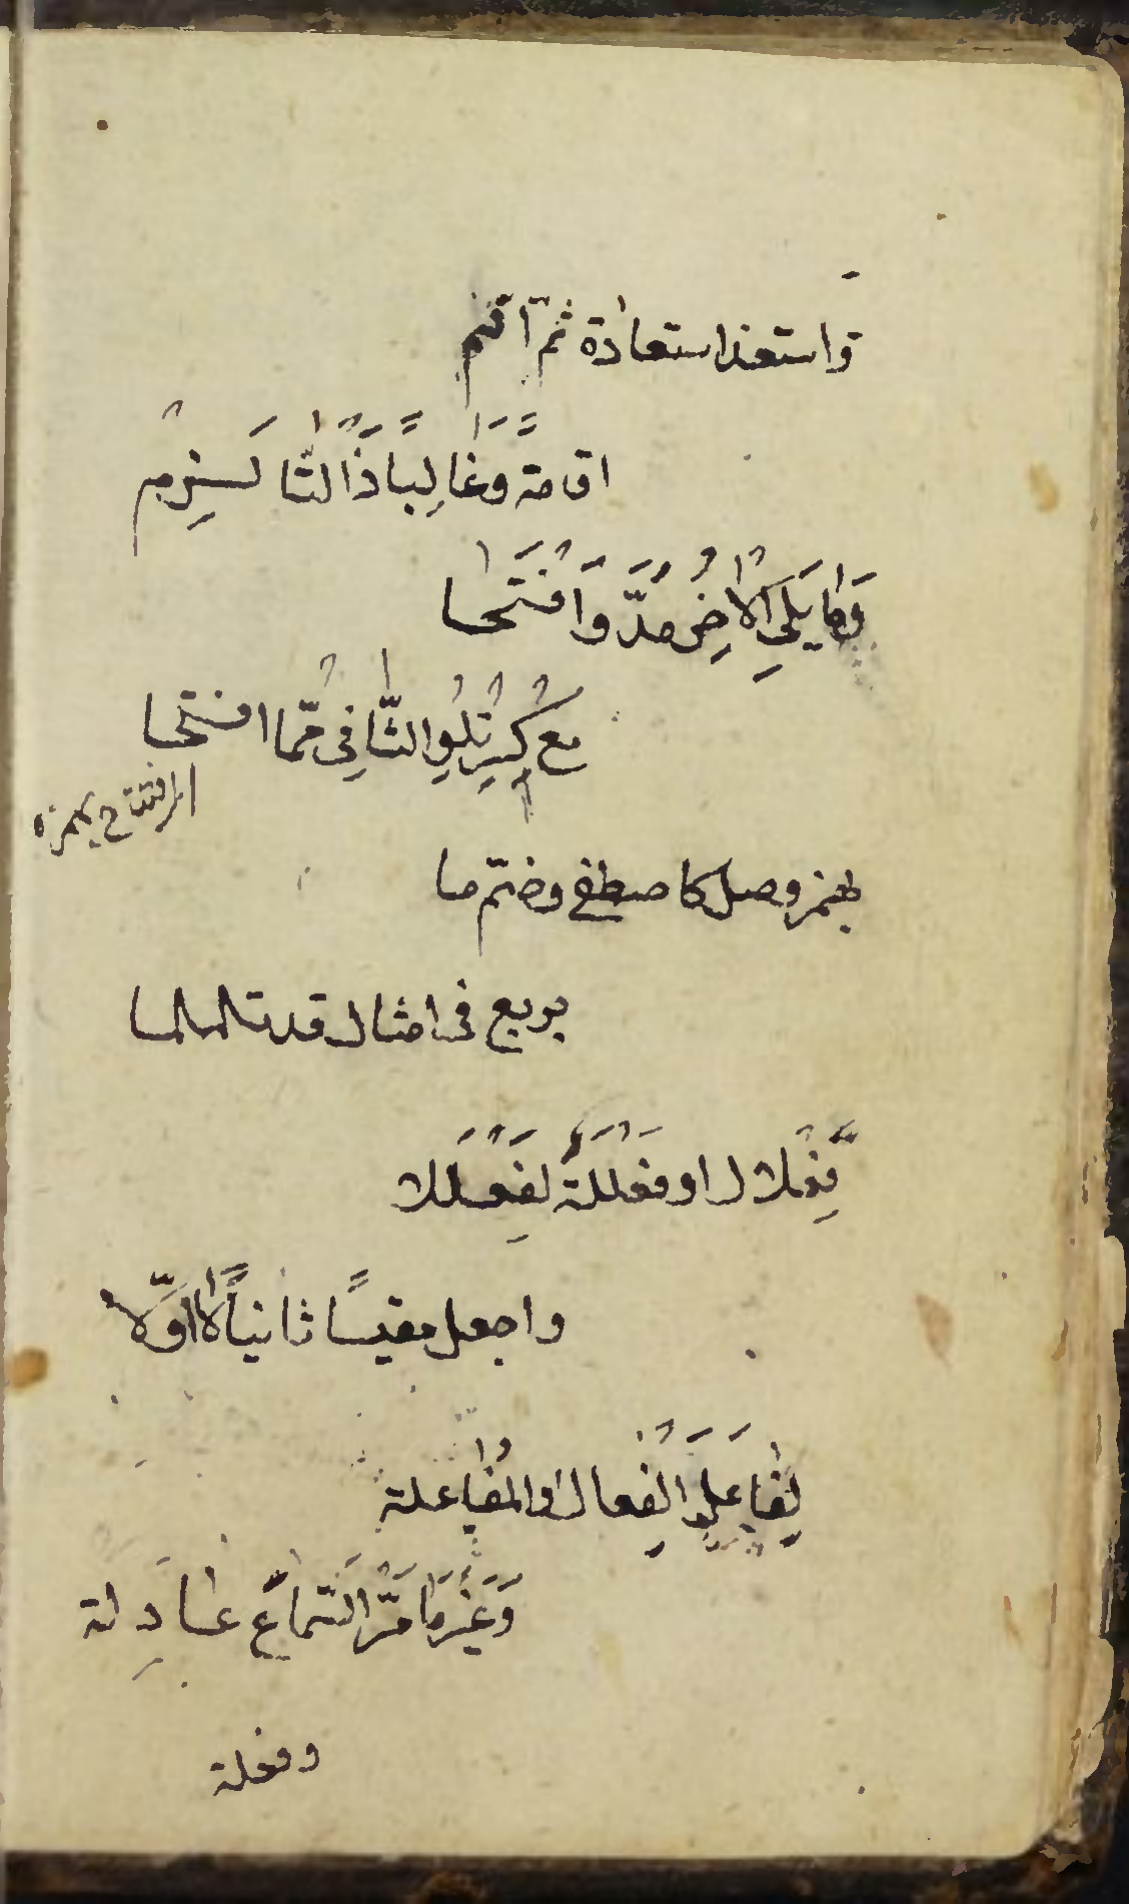 واستعذ استعاذة ثمّ أقم
اقامة وغَالِبًا ذَا التّا لَزِم
وَمَا يَلِي الآخِرُ مُدَّ وَافْتَحَا
مَعْ كَسْرِ تِلْوِ الثَّانِي مِمّا افتتحا
بهمز وصل كاصطفى وضمّ ما
يربع في امثال قد تلملما
فِعْلَال او فَعْلَلَةٌ لِفَعْلَلَا
واجعل مقيسًا ثانياً لَا اوّلَا
لِفَاعَلَ الْفِعَال والمُفَاعلة
وَغَيْرُ مَا مَرَّ السَّمَاعُ عَادَلَه
وفعلة